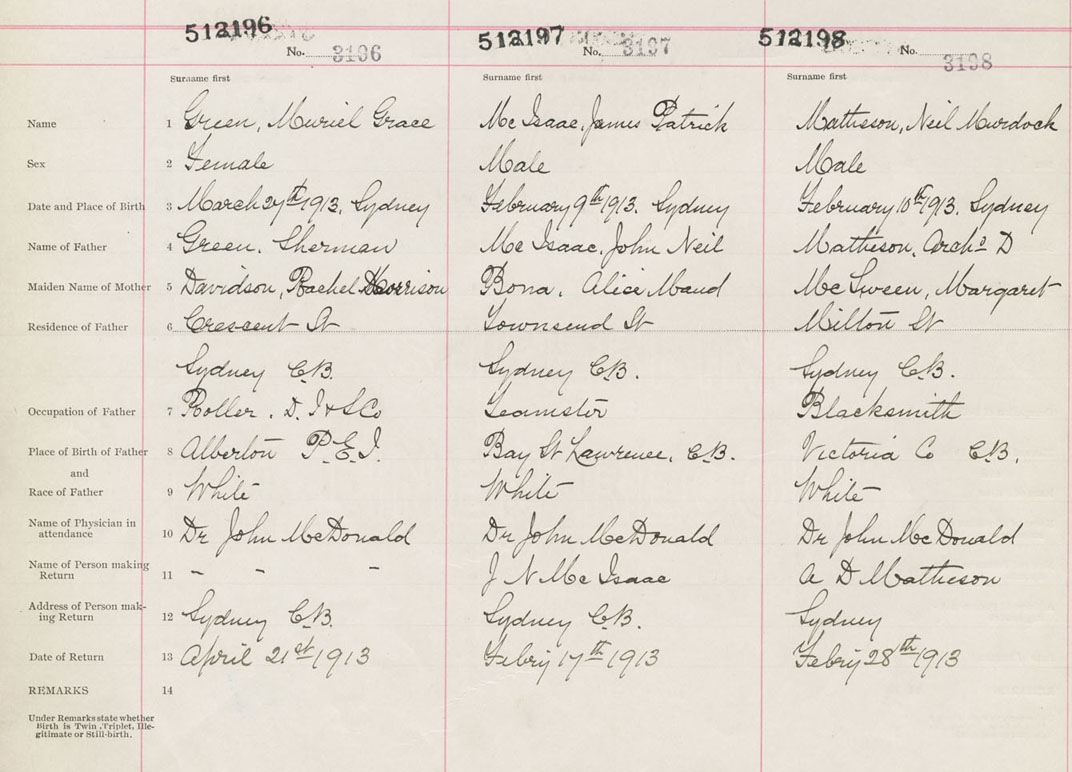 512196 512197 512198
No. 3196 No. 3197 No. 3198
Surname first Surname first Surname first
Name 1 Green, Muriel Grace Mc Isaac, James Patrick Matheson, Neil Murdock
Sex 2 Female Male Male
Date and Place of Birth 3 March 27th 1913. Sydney February 9th 1913. Sydney February 10th 1913. Sydney
Name of Father 4 Green. Sherman Mc Isaac, John Neil Matheson, Archd D
Maiden Name of Mother 5 Davidson, Rachel Harrison Bona, Alice Maud McSween, Margaret
Residence of Father 6 Crescent St Townsend St Milton St
Sydney C.B. Sydney C.B. Sydney C.B.
Occupation of Father 7 Roller. D. I & S Co Teamster Blacksmith
Place of Birth of Father 8 Alberton P.E.I. Bay St Lawrence, C.B. Victoria Co C.B.
and
Race of Father 9 White White White
Name of Physician in
attendance 10 Dr John McDonald Dr John McDonald Dr John McDonald
Name of Person making
Return 11 - - - J N Mc Isaac A D Matheson
Address of Person mak-
ing Return 12 Sydney C.B. Sydney C.B. Sydney
Date of Return 13 April 21st 1913 Febry 17th 1913 Febry 28th 1913
REMARKS 14
Under Remarks state whether
Birth is Twin, Triplet, Ille-
gitimate or Still-birth.